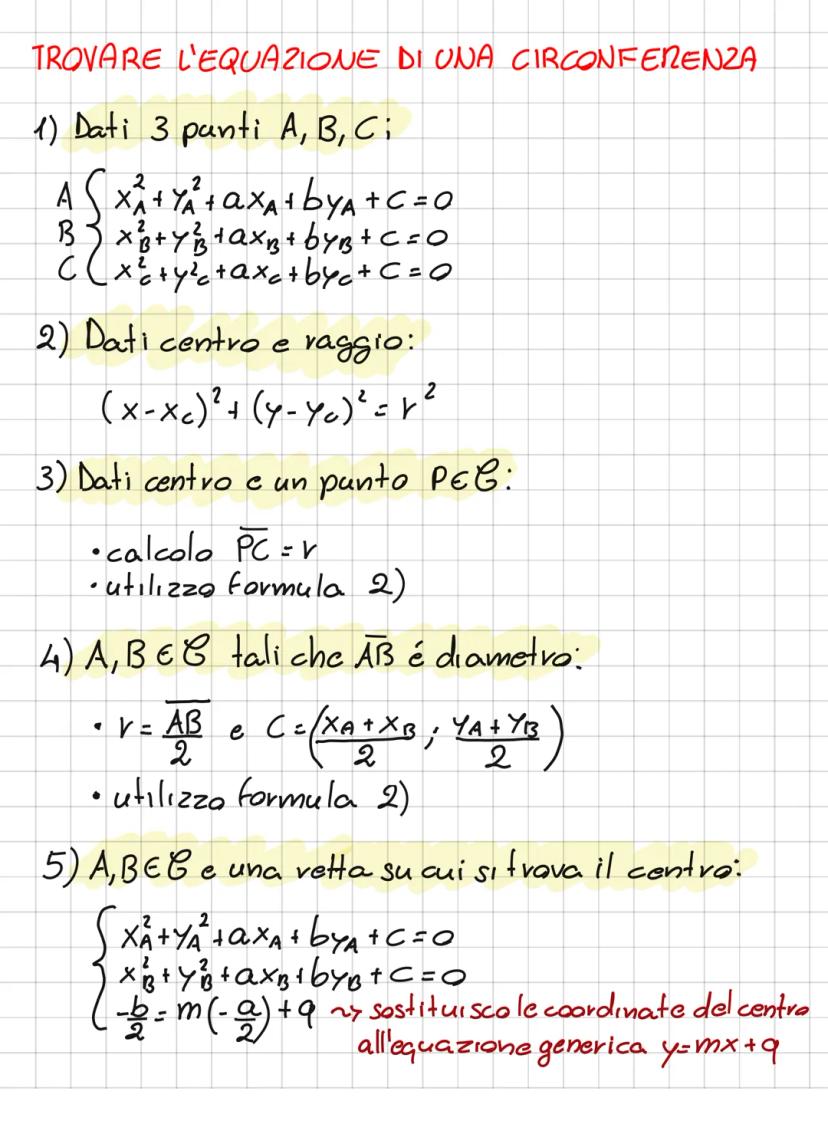 TROVARE L'EQUAZIONE DI UNA CIRCONFERENZA
1) Dati 3 punti A, B, C:
A { x_A^2 + y_A^2 + ax_A + by_A + c = 0
B { x_B^2 + y_B^2 + ax_B + by_B + c = 0
C { x_C^2 + y_C^2 + ax_C + by_C + c = 0
2) Dati centro e raggio:
(x - x_C)^2 + (y - y_C)^2 = r^2
3) Dati centro e un punto P∈𝒞:
• calcolo \overline{PC} = r
• utilizzo formula 2)
4) A, B ∈ 𝒞 tali che \overline{AB} é diametro:
• r = \overline{AB}/2 e C = ((x_A + x_B)/2 ; (y_A + y_B)/2)
• utilizzo formula 2)
5) A, B ∈ 𝒞 e una retta su cui si trova il centro:
{ x_A^2 + y_A^2 + ax_A + by_A + c = 0
{ x_B^2 + y_B^2 + ax_B + by_B + c = 0
{ -b/2 = m(-a/2) + q ⇝ sostituisco le coordinate del centro
all'equazione generica y = mx + q